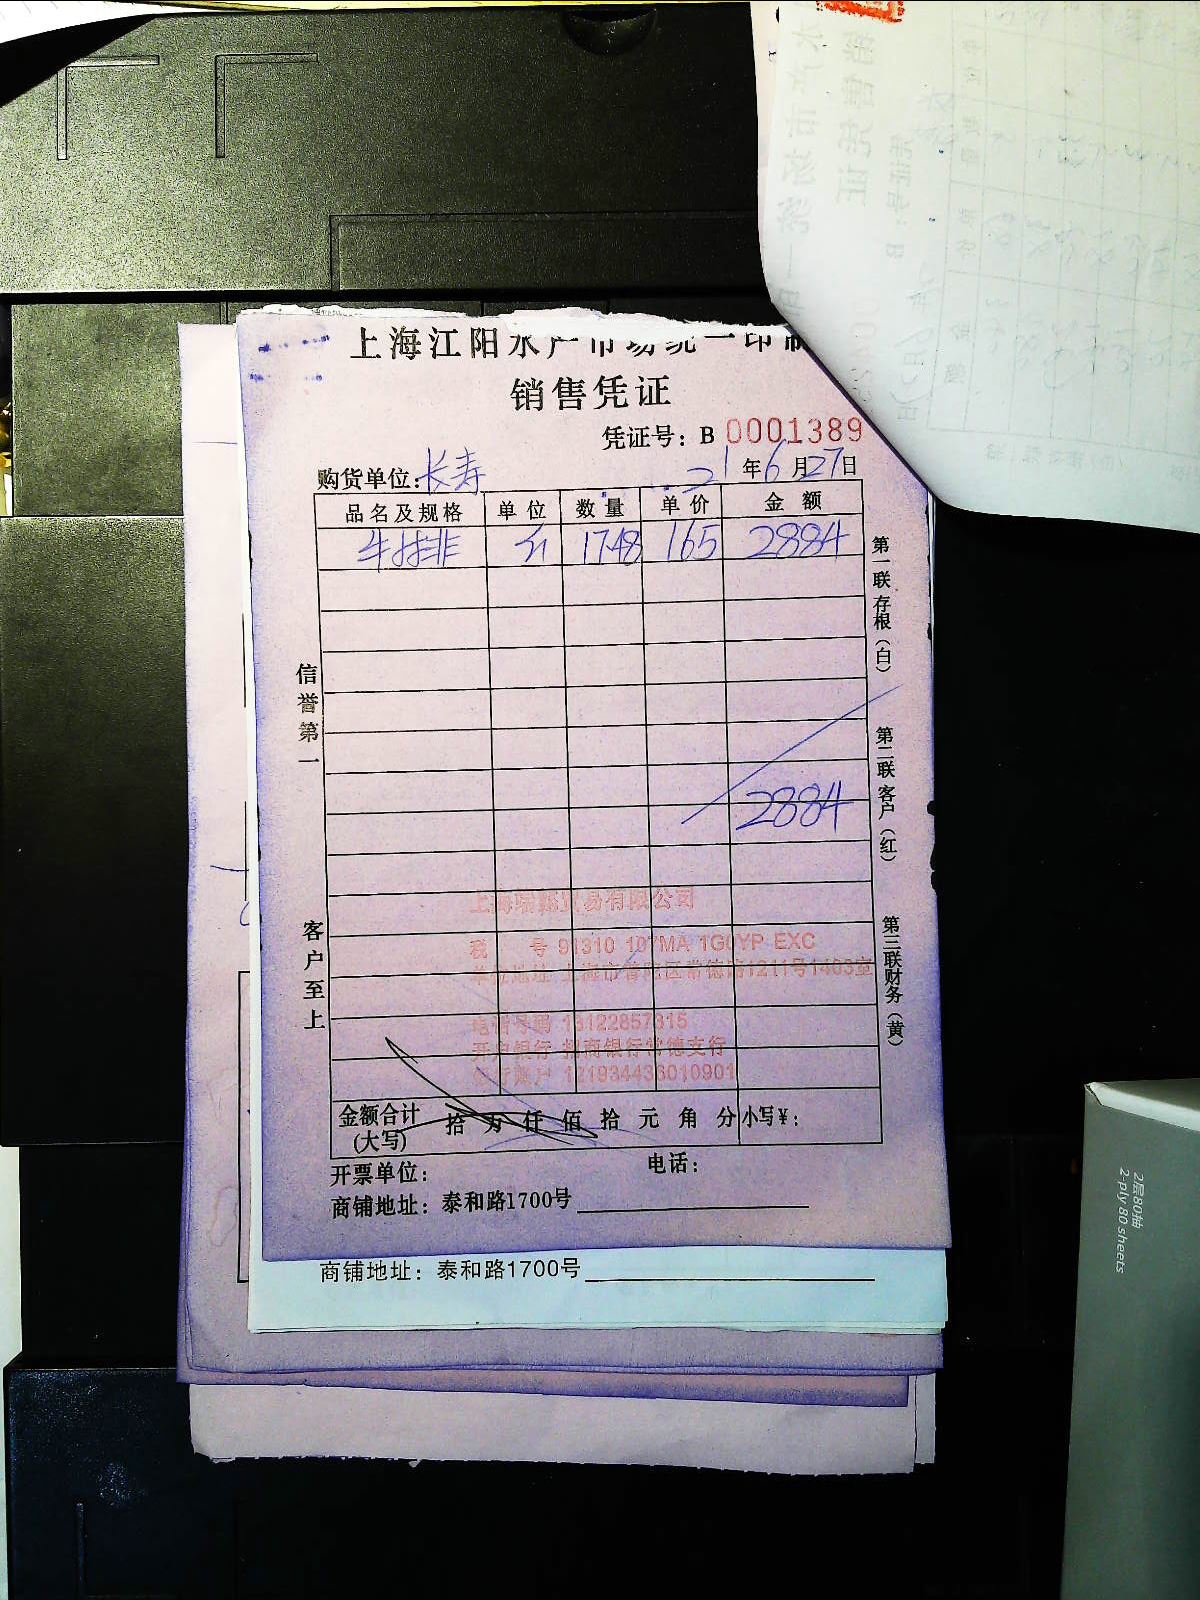 上海江阳水产市场统一印制
销售凭证
凭证号：B 0001389
购货单位：长寿 21年6月27日
品名及规格 单位 数量 单价 金额
牛排 斤 17.48 165 2884
2884
信誉第一
客户至上
第一联存根（白）
第二联客户（红）
第三联财务（黄）
易有限公司
税 号 91310 107MA 1G0YP EXC
单位地址 上海市普陀区常德路1211号1403室
电话号码 13122857315
开户银行 招商银行常德支行
银行账户 121934433010901
金额合计 拾 万 仟 佰 拾 元 角 分 小写¥：
(大写)
开票单位： 电话：
商铺地址：泰和路1700号
商铺地址：泰和路1700号
2层80抽
2-ply 80 sheets